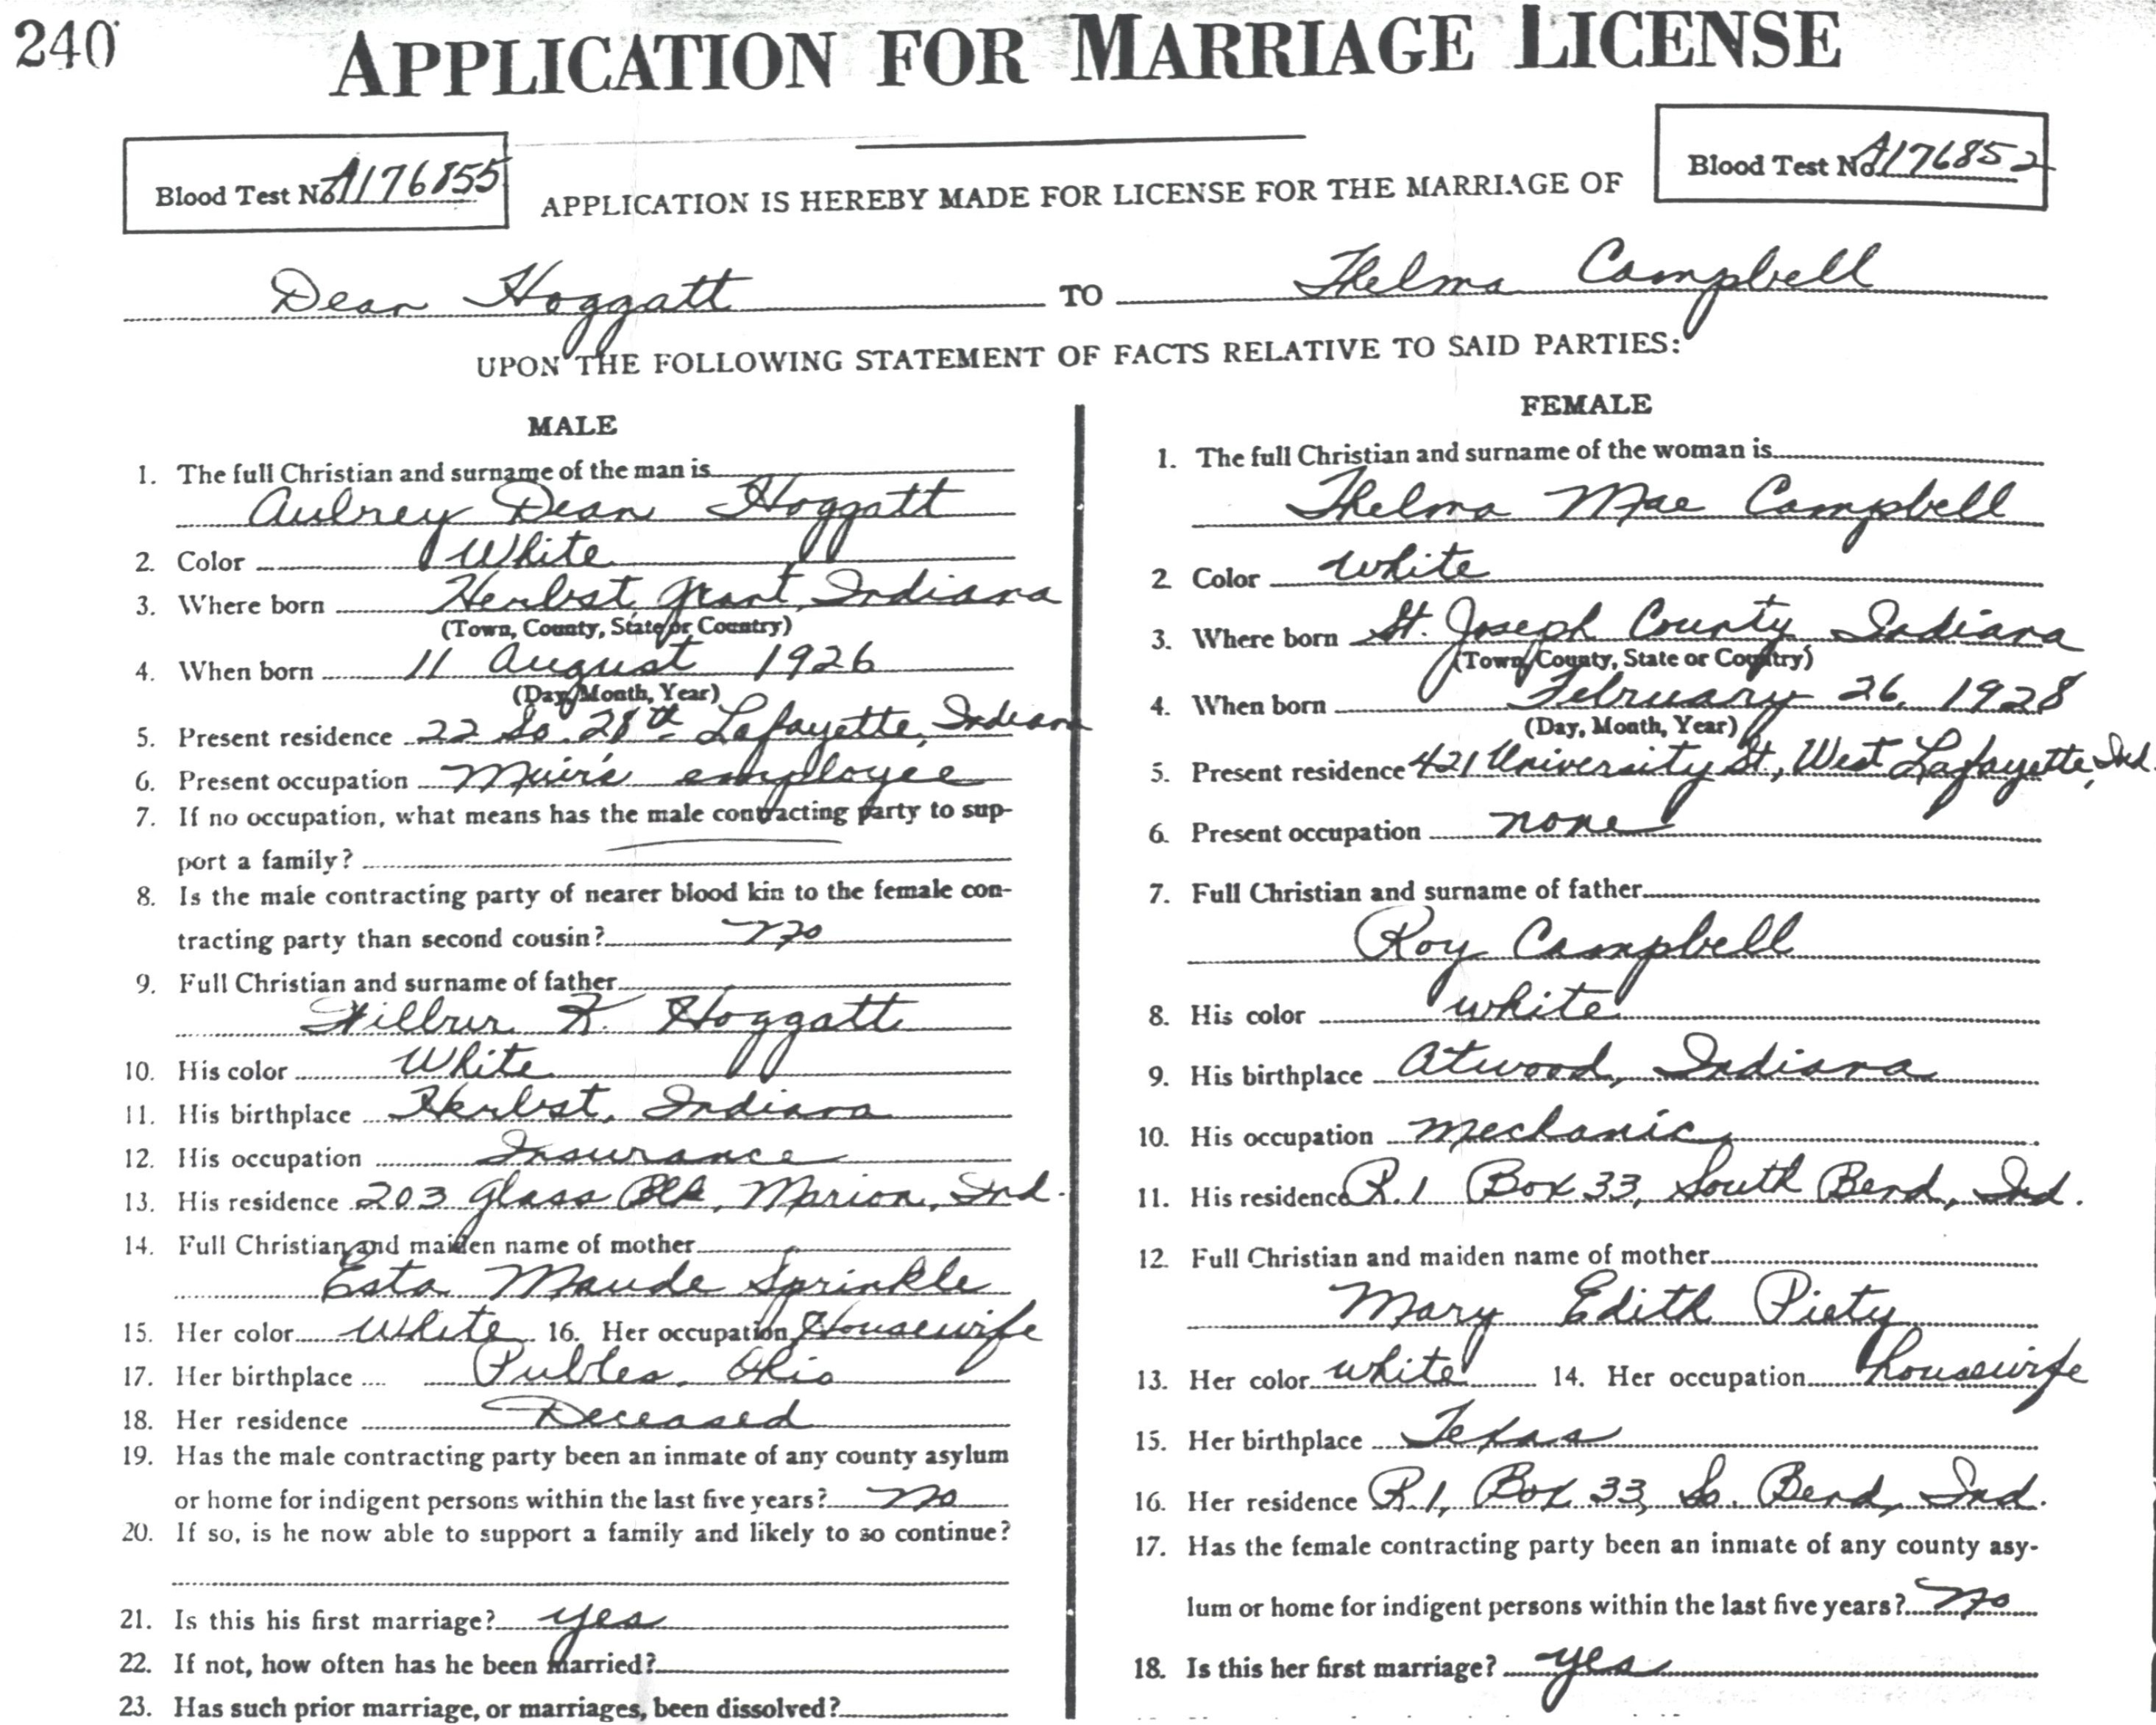 240
APPLICATION FOR MARRIAGE LICENSE
Blood Test No. A176855
Blood Test No. A176852
APPLICATION IS HEREBY MADE FOR LICENSE FOR THE MARRIAGE OF
Dean Hoggatt TO Thelma Campbell
UPON THE FOLLOWING STATEMENT OF FACTS RELATIVE TO SAID PARTIES:
MALE
1. The full Christian and surname of the man is
Aubrey Dean Hoggatt
2. Color White
3. Where born Herbst, Grant, Indiana
(Town, County, State or Country)
4. When born 11 August 1926
(Day, Month, Year)
5. Present residence 22 So. 28th Lafayette, Indiana
6. Present occupation Muir's employee
7. If no occupation, what means has the male contracting party to sup-
port a family?
8. Is the male contracting party of nearer blood kin to the female con-
tracting party than second cousin? no
9. Full Christian and surname of father
Wilbur K. Hoggatt
10. His color White
11. His birthplace Herbst, Indiana
12. His occupation Insurance
13. His residence 203 Glass Blk, Marion, Ind.
14. Full Christian and maiden name of mother
Esta Maude Sprinkle
15. Her color White 16. Her occupation Housewife
17. Her birthplace Ohio
18. Her residence Deceased
19. Has the male contracting party been an inmate of any county asylum
or home for indigent persons within the last five years? no
20. If so, is he now able to support a family and likely to so continue?
21. Is this his first marriage? yes
22. If not, how often has he been married?
23. Has such prior marriage, or marriages, been dissolved?
FEMALE
1. The full Christian and surname of the woman is
Thelma Mae Campbell
2 Color white
3. Where born St. Joseph County Indiana
(Town, County, State or Country)
4. When born February 26, 1928
(Day, Month, Year)
5. Present residence 421 University St, West Lafayette, Ind.
6. Present occupation none
7. Full Christian and surname of father
Roy Campbell
8. His color white
9. His birthplace Atwood, Indiana
10. His occupation mechanic
11. His residence R.1 Box 33, South Bend, Ind.
12. Full Christian and maiden name of mother
Mary Edith Piety
13. Her color white 14. Her occupation housewife
15. Her birthplace Texas
16. Her residence R.1, Box 33, So. Bend, Ind.
17. Has the female contracting party been an inmate of any county asy-
lum or home for indigent persons within the last five years? no
18. Is this her first marriage? yes